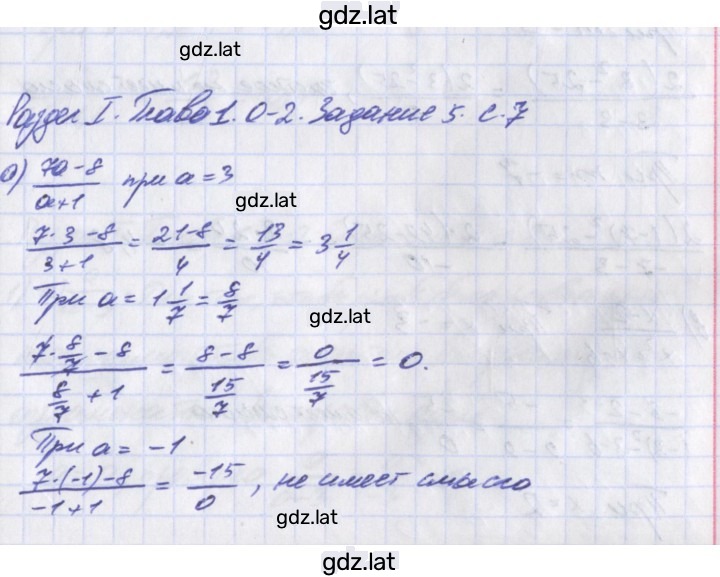 gdz.lat
gdz.lat
Раздел I. Глава 1. О-2. Задание 5. С. 7
а) (7a-8)/(a+1) при a = 3
gdz.lat
(7·3-8)/(3+1) = (21-8)/4 = 13/4 = 3 1/4
При a = 1 1/7 = 8/7
gdz.lat
(7·8/7 - 8)/(8/7 + 1) = (8-8)/(15/7) = 0/(15/7) = 0.
При a = -1
(7·(-1)-8)/(-1+1) = -15/0, не имеет смысла
gdz.lat
gdz.lat